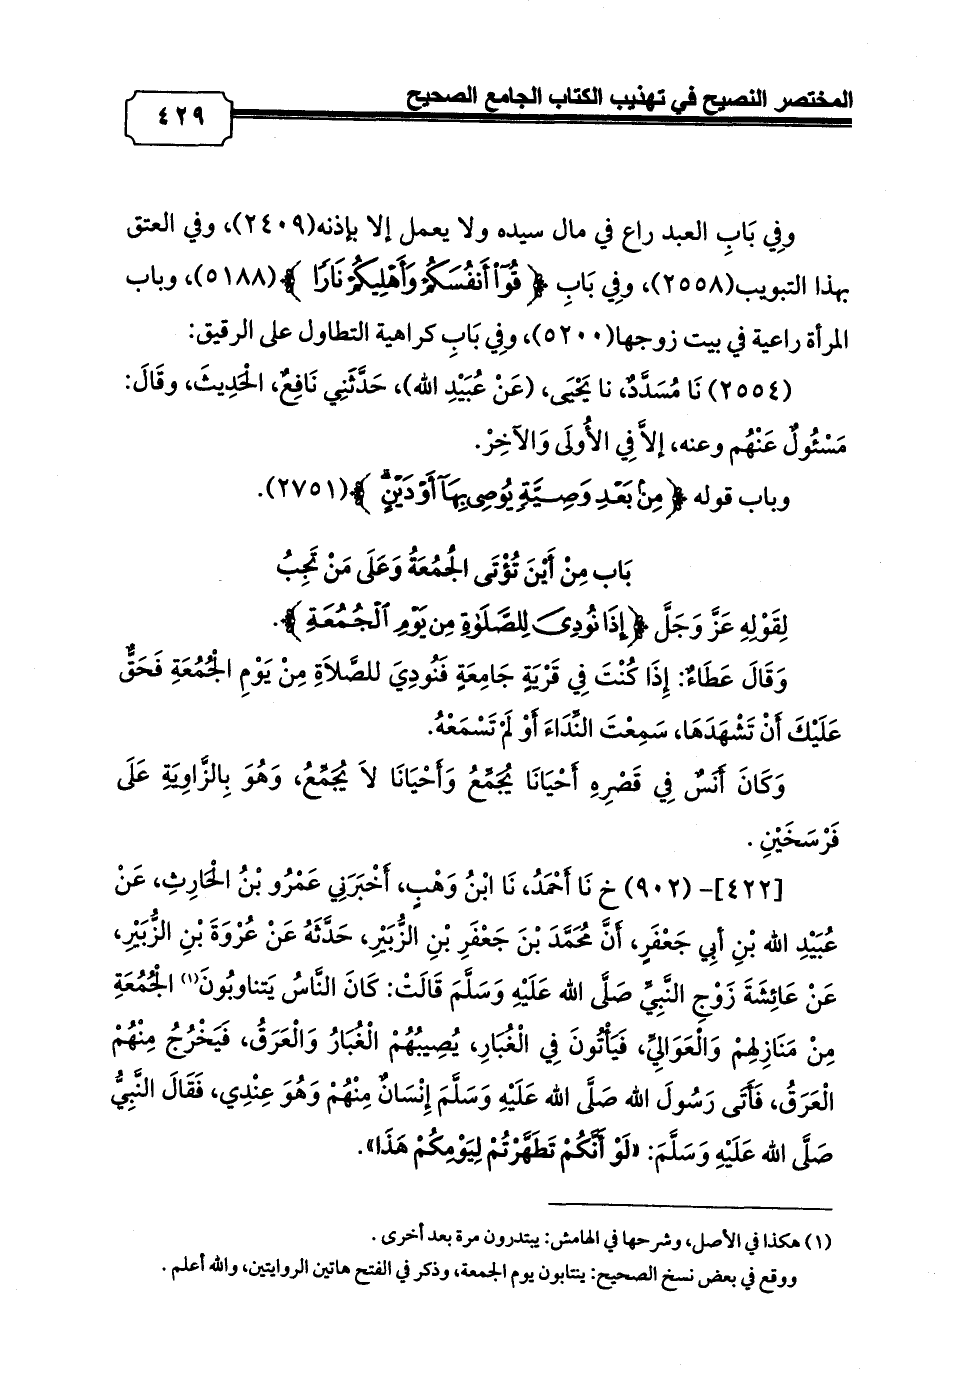 المختصر النصيح في تهذيب الكتاب الجامع الصحيح
٤٢٩
وفِي بَابِ العبد راع في مال سيده ولا يعمل إلا بإذنه(٢٤٠٩)، وفي العتق
بهذا التبويب(٢٥٥٨)، وفِي بَابِ ﴿ قُوٓا۟ أَنفُسَكُمْ وَأَهْلِيكُمْ نَارًا ﴾(٥١٨٨)، وباب
المرأة راعية في بيت زوجها(٥٢٠٠)، وفِي بَابِ كراهية التطاول على الرقيق:
(٢٥٥٤) نَا مُسَدَّدٌ، نا يَحْيَى، (عَنْ عُبَيْدِ الله)، حَدَّثَنِي نَافِعٌ، الْحَدِيثَ، وقَالَ:
مَسْئُولٌ عَنْهُم وعنه، إلاَّ فِي الأُولَى وَالآخِرْ.
وباب قوله ﴿ مِنۢ بَعْدِ وَصِيَّةٍ يُوصِى بِهَآ أَوْ دَيْنٍ ۗ ﴾(٢٧٥١).
بَاب مِنْ أَيْنَ تُؤْتَى الْجُمُعَةُ وَعَلَى مَنْ تَجِبُ
لِقَوْلِهِ عَزَّ وَجَلَّ ﴿ إِذَا نُودِىَ لِلصَّلَوٰةِ مِن يَوْمِ ٱلْجُمُعَةِ ﴾.
وَقَالَ عَطَاءٌ: إِذَا كُنْتَ فِي قَرْيَةٍ جَامِعَةٍ فَنُودِيَ للصَّلاَةِ مِنْ يَوْمِ الْجُمُعَةِ فَحَقٌّ
عَلَيْكَ أَنْ تَشْهَدَهَا، سَمِعْتَ النِّدَاءَ أَوْ لَمْ تَسْمَعْهُ.
وَكَانَ أَنَسٌ فِي قَصْرِهِ أَحْيَانَا يُجَمِّعُ وَأَحْيَانَا لاَ يُجَمِّعُ، وَهُوَ بِالزَّاوِيَةِ عَلَى
فَرْسَخَيْنِ .
[٤٢٢]- (٩٠٢) خ نَا أَحْمَدُ، نَا ابْنُ وَهْبٍ، أَخْبَرَنِي عَمْرُو بْنُ الْحَارِثِ، عَنْ
عُبَيْدِ الله بْنِ أبِي جَعْفَرٍ، أَنَّ مُحَمَّدَ بْنَ جَعْفَرِ بْنِ الزُّبَيْرِ، حَدَّثَهُ عَنْ عُرْوَةَ بْنِ الزُّبَيْرِ،
عَنْ عَائِشَةَ زَوْجِ النَّبِيِّ صَلَّى الله عَلَيْهِ وَسَلَّمَ قَالَتْ: كَانَ النَّاسُ يَتناوبُونَ(١) الْجُمُعَةِ
مِنْ مَنَازِلِهِمْ وَالْعَوَالِيِّ، فَيَأْتُونَ فِي الْغُبَارِ، يُصِيبُهُمْ الْغُبَارُ وَالْعَرَقُ، فَيَخْرُجُ مِنْهُمْ
الْعَرَقُ، فَأَتَى رَسُولَ الله صَلَّى الله عَلَيْهِ وَسَلَّمَ إِنْسَانٌ مِنْهُمْ وَهُوَ عِنْدِي، فَقَالَ النَّبِيُّ
صَلَّى الله عَلَيْهِ وَسَلَّمَ: «لَوْ أَنَّكُمْ تَطَهَّرْتُمْ لِيَوْمِكُمْ هَذَا».
(١) هكذا في الأصل، وشرحها في الهامش: يبتدرون مرة بعد أخرى .
ووقع في بعض نسخ الصحيح: ينتابون يوم الجمعة، وذكر في الفتح هاتين الروايتين، والله أعلم .